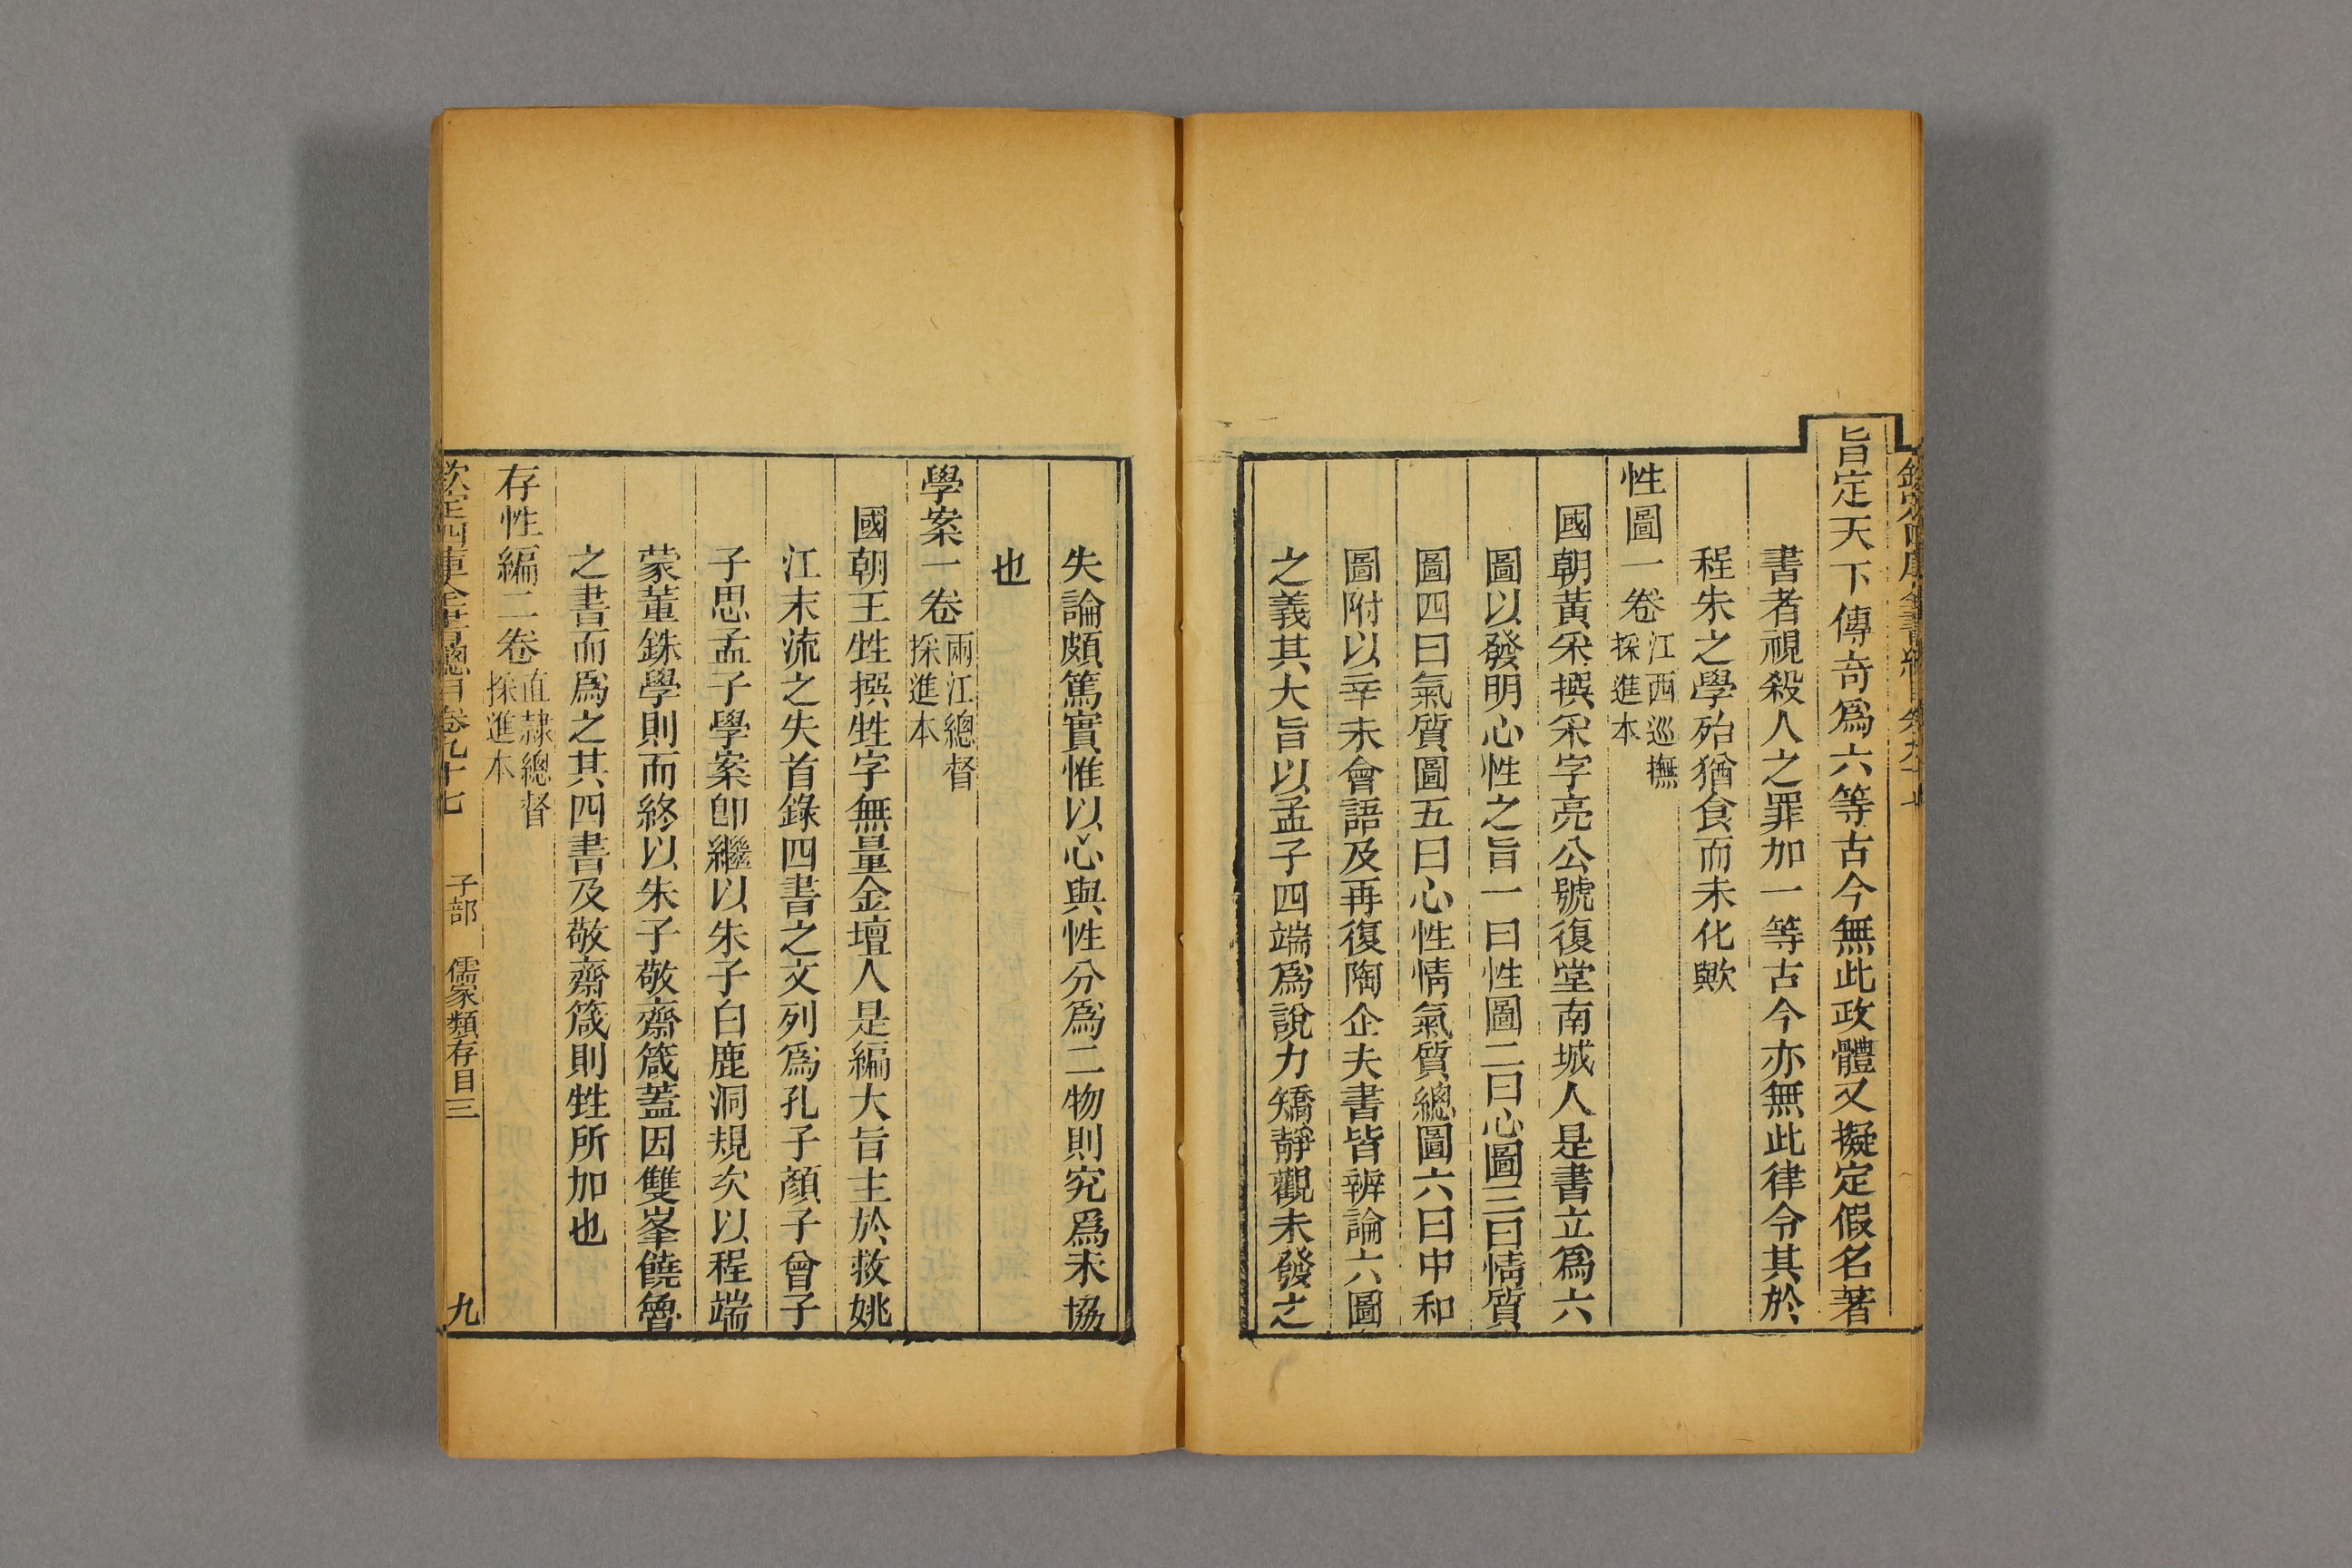 旨定天下傳奇爲六等古今無此政體又擬定假名著
書者視殺人之罪加一等古今亦無此律令其於
程朱之學殆猶食而未化歟
性圖一卷江西巡撫採進本
國朝黃采撰采字亮公號復堂南城人是書立爲六
圖以發明心性之旨一曰性圖二曰心圖三曰情質
圖四曰氣質圖五曰心性情氣質總圖六曰中和
圖附以辛未會語及再復陶企夫書皆辨論六圖
之義其大旨以孟子四端爲說力矯靜觀未發之
失論頗篤實惟以心與性分爲二物則究爲未協
也
學案一卷兩江總督採進本
國朝王甡撰甡字無量金壇人是編大旨主於救姚
江末流之失首錄四書之文列爲孔子顏子曾子
子思孟子學案卽繼以朱子白鹿洞規次以程端
蒙董銖學則而終以朱子敬齋箴蓋因雙峯饒魯
之書而爲之其四書及敬齋箴則甡所加也
存性編二卷直隷總督採進本
欽定四庫全書總目卷九十七 子部 儒家類存目三 九